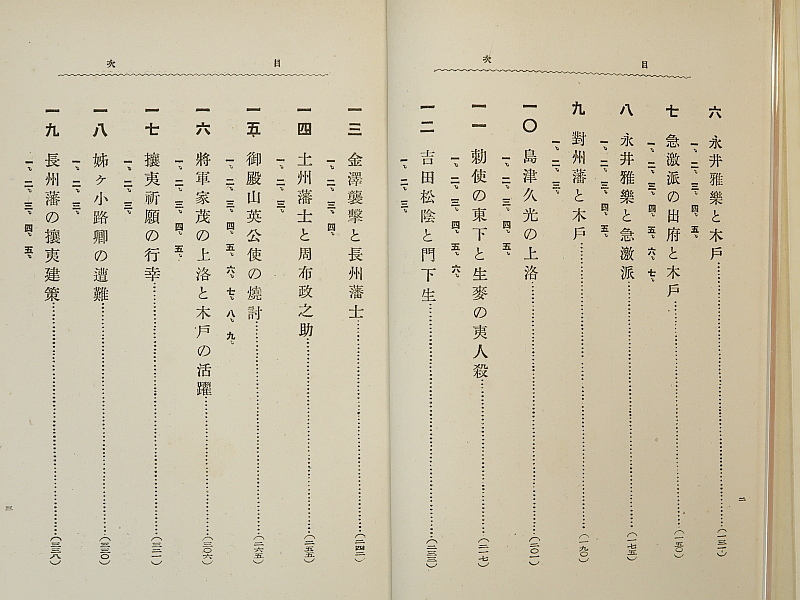 目次
六 永井雅樂と木戶……(一三一)
一、二、三、四、五、
七 急激派の出府と木戶……(一五〇)
一、二、三、四、五、六、七、
八 永井雅樂と急激派……(一七五)
一、二、三、四、五、
九 對州藩と木戶……(一九〇)
一、二、三、
一〇 島津久光の上洛……(二〇一)
一、二、三、四、五、
一一 勅使の東下と生麥の夷人殺……(二一七)
一、二、三、四、五、六、
一二 吉田松陰と門下生……(二三三)
一、二、三、
二
目次
一三 金澤襲擊と長州藩士……(二四二)
一、二、三、四、
一四 土州藩士と周布政之助……(二五五)
一、二、三、
一五 御殿山英公使の燒討……(二六五)
一、二、三、
一六 將軍家茂の上洛と木戶の活躍……(三〇六)
一、二、三、四、五、六、七、八、九、
一七 攘夷祈願の行幸……(三二一)
一、二、三、四、五、
一八 姊ヶ小路卿の遭難……(三三〇)
一、二、三、
一九 長州藩の攘夷建策……(三三八)
一、二、三、四、五、
三